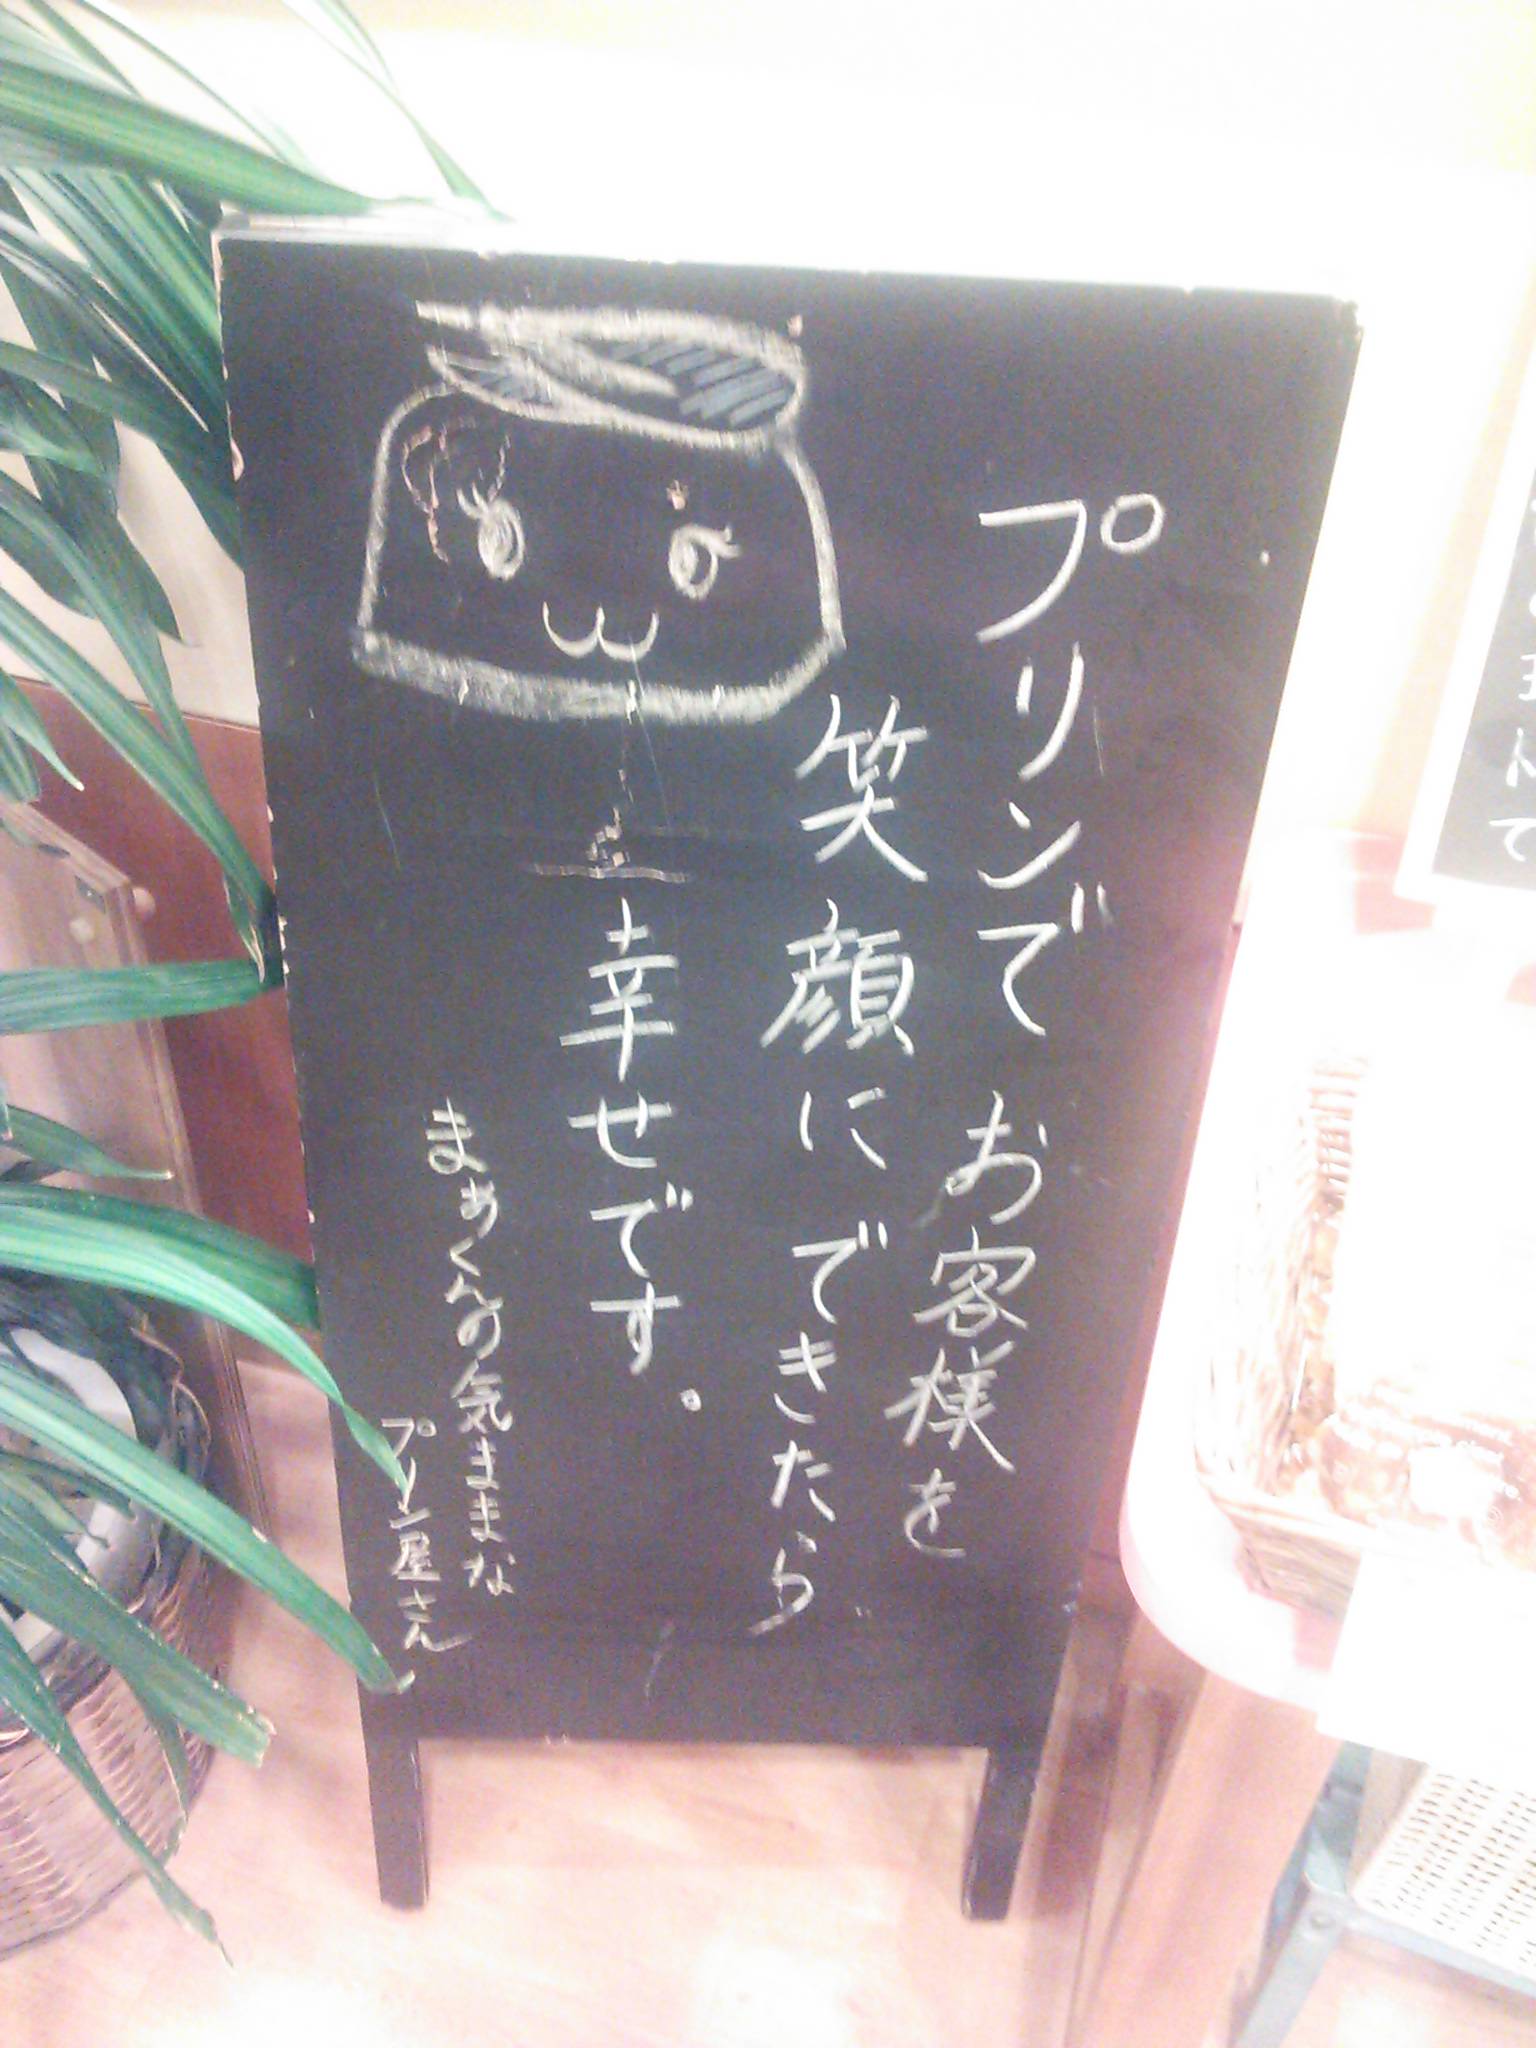 プリンで お客様を
笑顔にできたら
幸せです。
まぁくんの気ままな
プリン屋さん
まんで